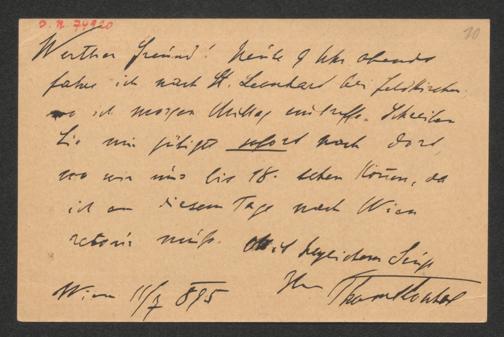 J. N. 74920
20
Werther Freund! Heute 9 Uhr abends
fahre ich nach St. Leonhard bei Feldkirchen
wo ich morgen Mittag eintreffe. Schreiben
Sie mir gütigst sofort nach dort,
wo wir uns bis 18. sehen können, da
ich an diesem Tage nach Wien
retour muß. Mit herzlichem Gruß
Ihr
Wien 11/7 895